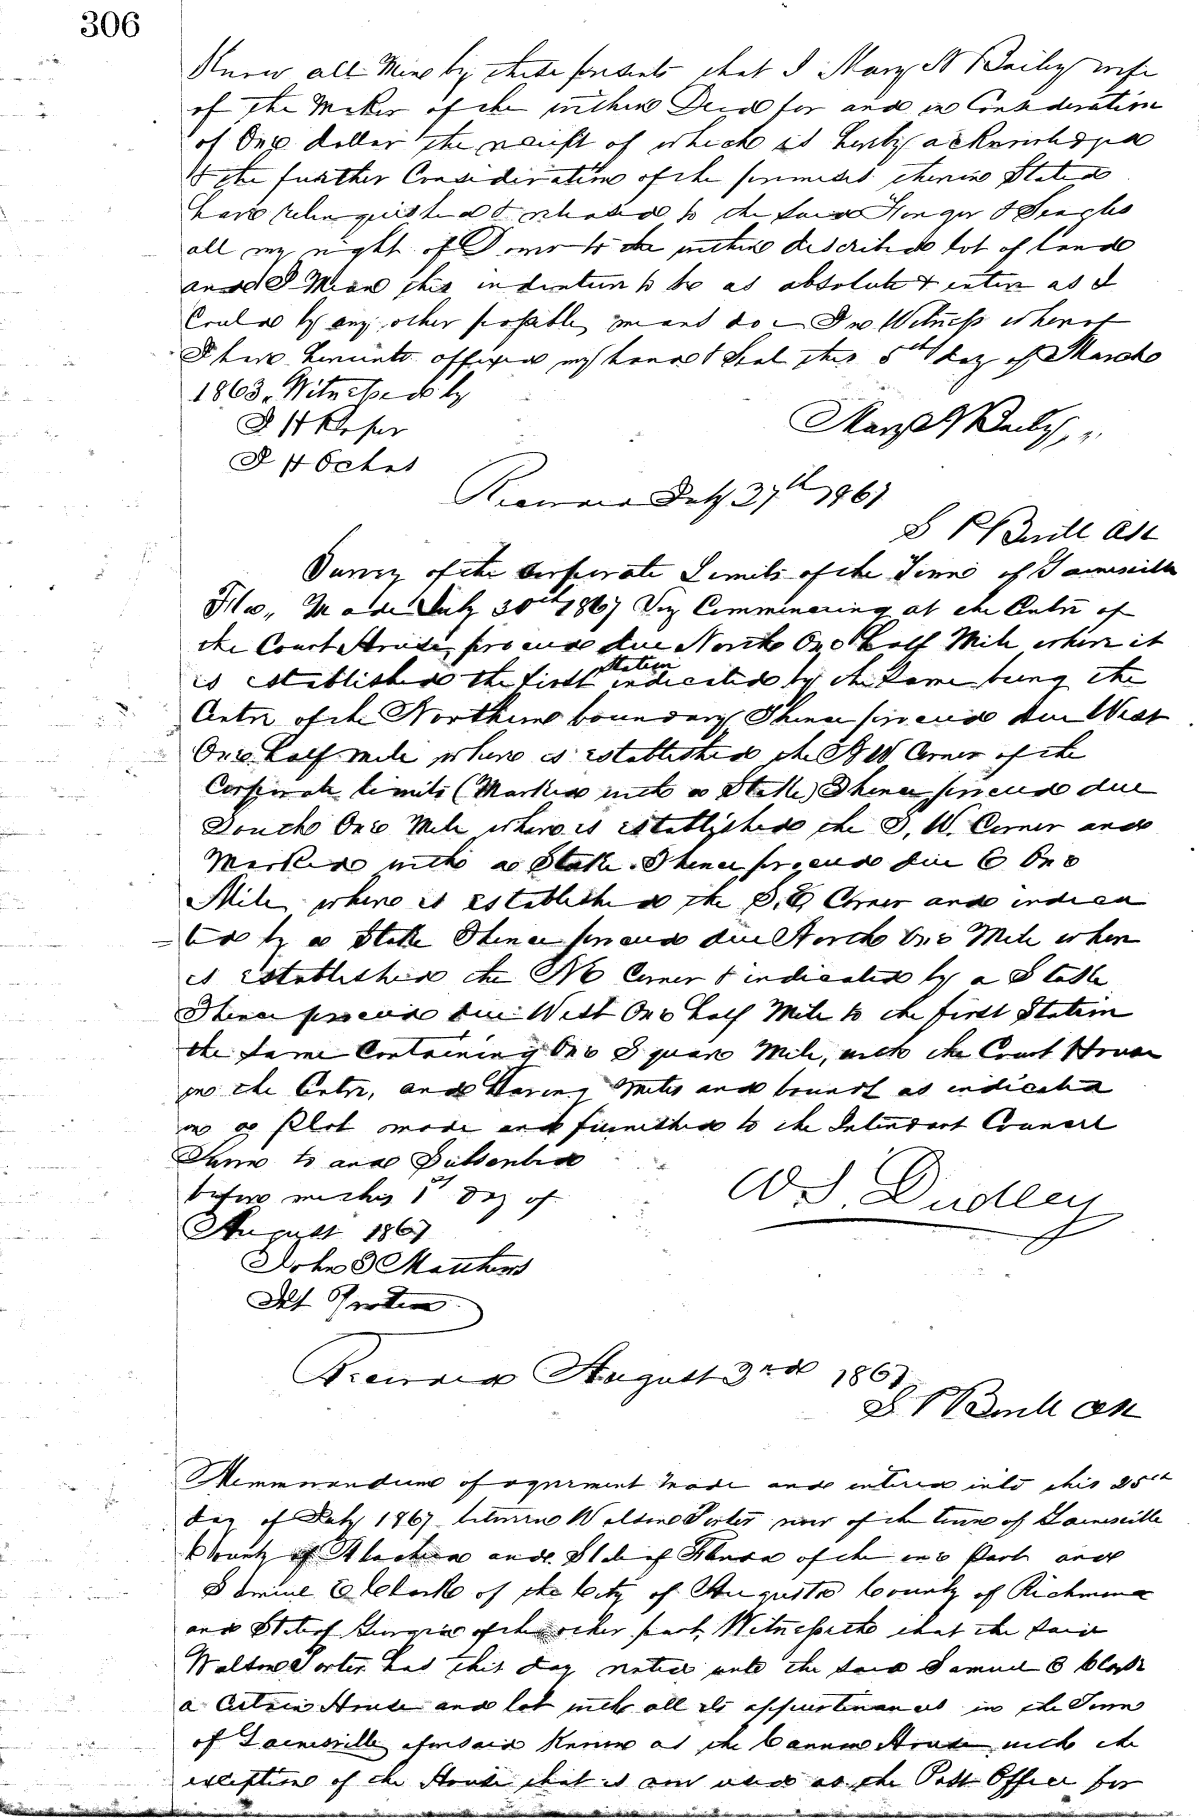 306
Know all Men by these presents that I Mary N Bailey wife
of the Maker of the within Deed for and in Consideration
of One dollar the receipt of which is hereby acknowledged
& the further Consideration of the premises therein Stated
have relinquished & released to the said &
all my right of Dower to the within described lot of land
and I Mean this indenture to be as absolute & entire as I
Could by any other possible means do - In Witness whereof
I have hereunto affixed my hand & Seal this 5th day of March
1863. Witnessed by
I H Roper
Mary N Bailey
I H Ochus
Received July 27th 1867
S P Burill Clk
Survey of the Corporate Limits of the Town of Gainesville
Fla., Made July 30th 1867 Viz Commencing at the Centre of
the Court House, proceed due North One half Mile where it
is established the first Station indicated by the Same being the
Centre of the Northern boundary Thence proceed due West
One half mile where is established the N W Corner of the
Corporate limits (Marked with a Stake) Thence proceed due
South One Mile where is established the S. W. Corner and
Marked with a Stake. Thence proceed due E One
Mile where is established the S. E. Corner and indica
ted by a Stake Thence proceed due North One Mile where
is established the N E Corner & indicated by a Stake
Thence proceed due West One half Mile to the first Station
the Same Containing One Square Mile, with the Court House
in the Centre, and Having metes and bounds as indicated
in a Plot made and furnished to the Intendant Council
Sworn to and Subscribed
before me this 1st Day of
W S. Dudley
August 1867
John S Matthews
Int Protem
Received August 3rd 1867
S P Burill Clk
Memorandum of agreement Made and entered into this 25th
day of July 1867 between Walson Porter now of the town of Gainesville
County of Alachua and State of Florida of the one Part and
Samuel E Clark of the City of Augusta County of Richmond
and State of Georgia of the other part, Witnesseth that the said
Walson Porter has this day rented unto the said Samuel E Clark
a Certain House and lot with all its appurtenances in the Town
of Gainesville aforesaid Known as the Cannon House with the
exception of the House that is now used as the Post Office for